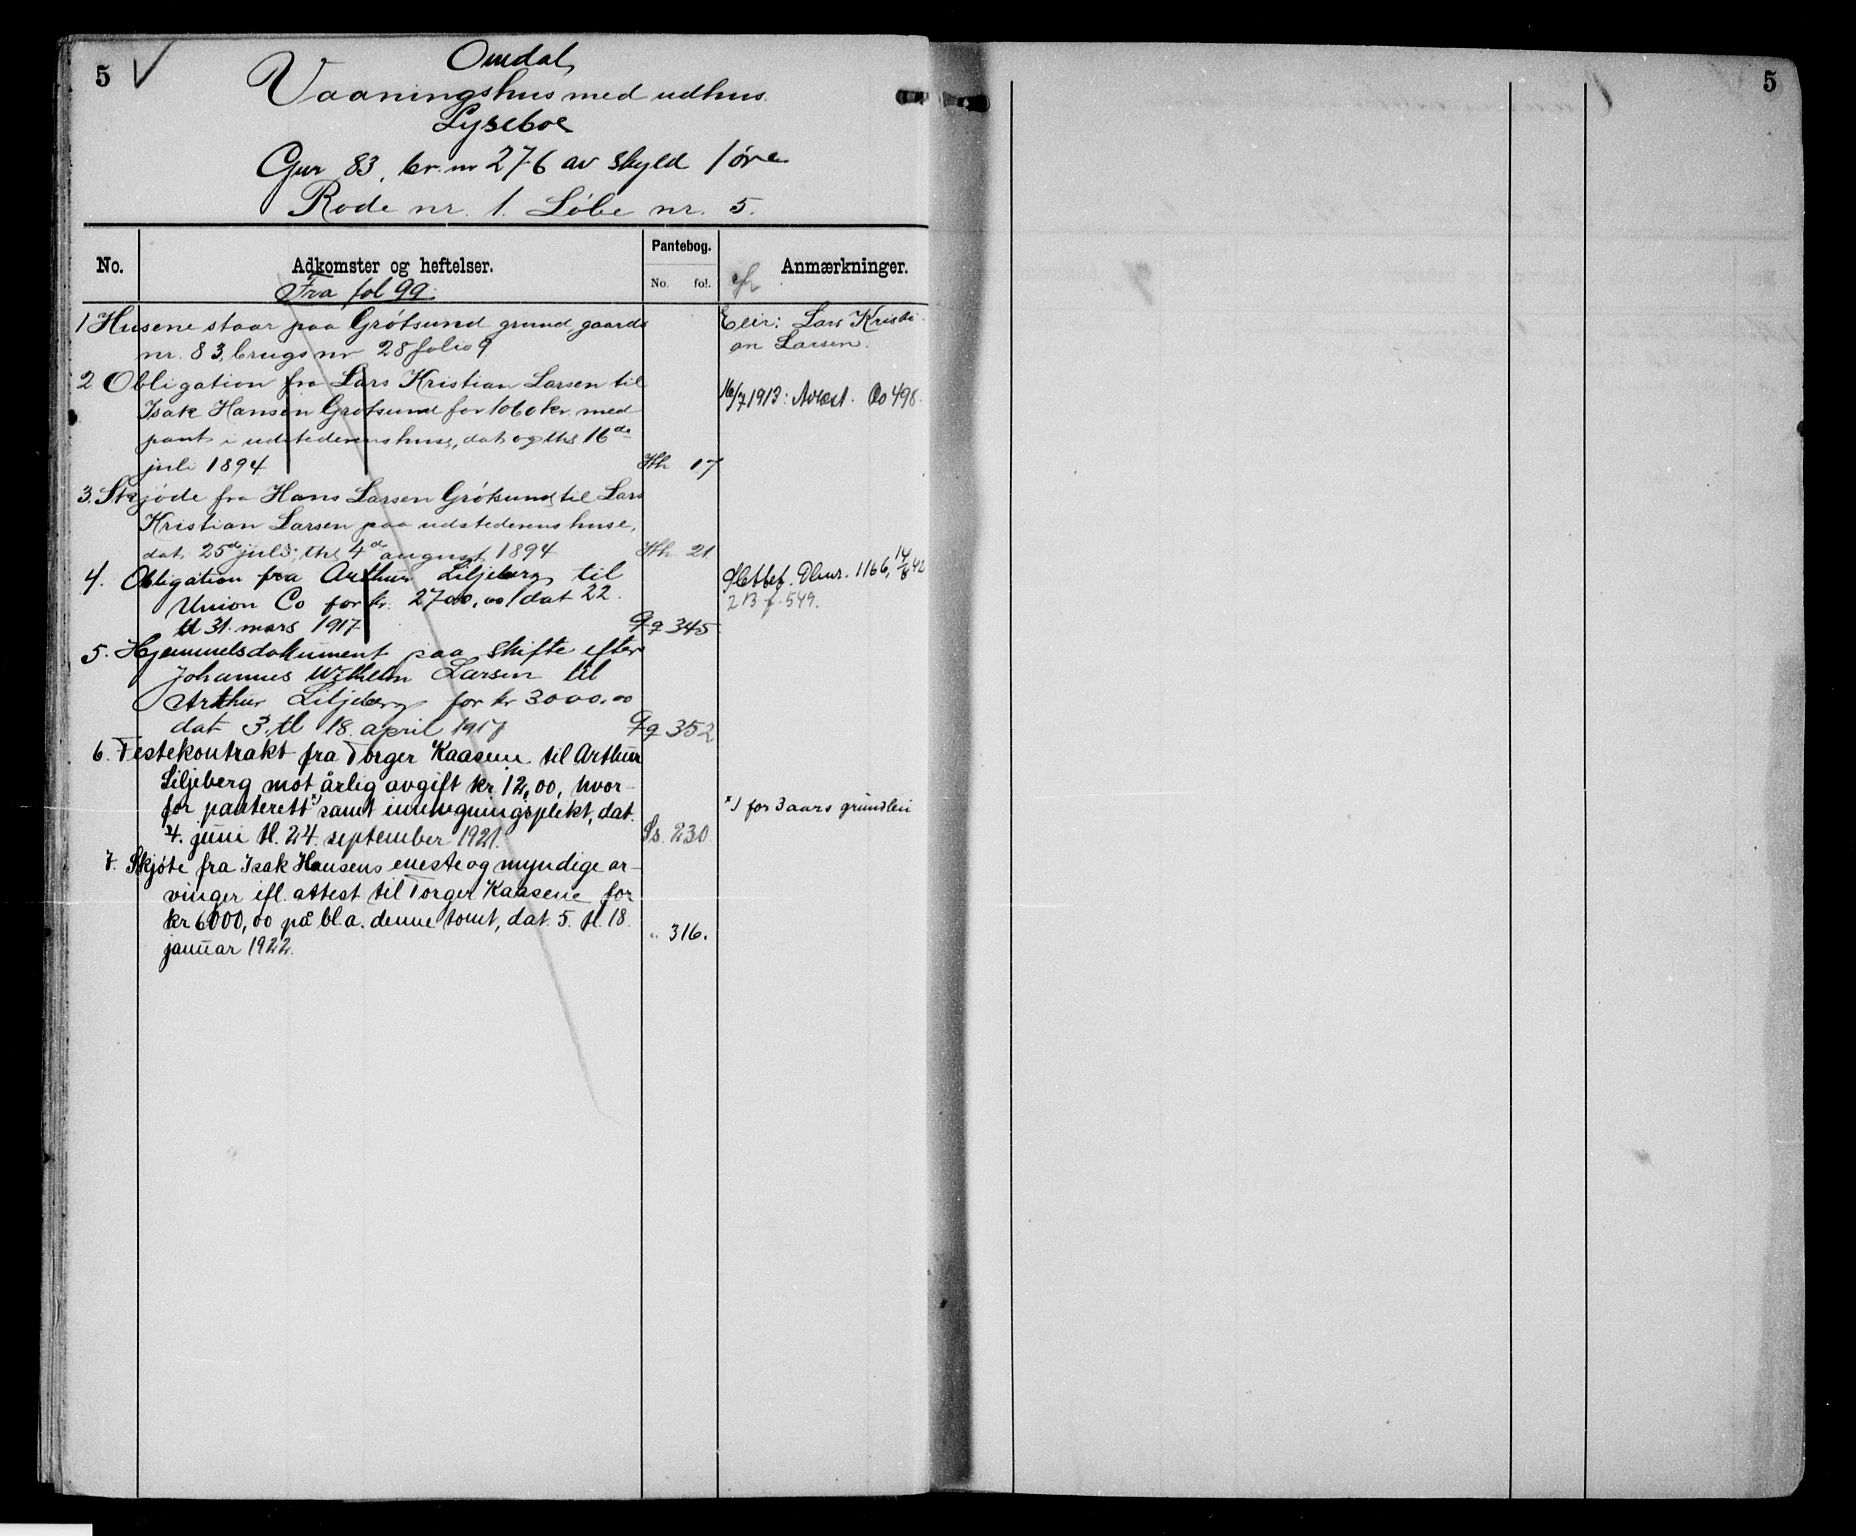 5
Omdal
Vaaningshus med udhus.
Lyseboe
Gnr 83, br. nr 276 av skyld 1 øre
Rode nr. 1. Løbe nr. 5.
No.
Adkomster og heftelser.
Pantebog.
No. fol.
Anmærkninger.
Fra fol 99.
1 Husene staar paa Grøtsund grund, gaards
nr. 83, brugs nr 28 folio 9
Eier: Lars Kristi-
an Larsen.
2 Obligation fra Lars Kristian Larsen til
Isak Hansen Grøtsund for 1060 kr. med
pant i udstederens huse, dat og thl 16de
juli 1894
Hh 17
16/7 1913: Avlæst. Oo 498.
3. Skjøde fra Hans Larsen Grøtsund til Lars
Kristian Larsen paa udstederens huse,
dat. 25de juli, thl 4de august 1894
Hh 21
4. Obligation fra Arthur Liljeberg til
Union Co for kr. 2700,00 dat 22.
tl 31. mars 1917
Qq 345
Slettet. Dbnr. 1166, 14/8 42
213 f. 549.
5. Hjemmelsdokument paa skifte efter
Johannes Wilhelm Larsen til
Arthur Liljeberg for kr 3000.00
dat 3. tl 18. april 1917
Qq 352
6. Festekontrakt fra Torger Kaasene til Arthur
Liljeberg mot årlig avgift kr. 12,00, hvor-
for panterett x) samt innhegningsplikt, dat.
4. juni tl. 24. september 1921.
Ss. 230
x) for 3 aars grundleie
7. Skjøte fra Isak Hansens eneste og myndige ar-
vinger ifl. attest til Torger Kaasene for
kr 6000,00 på bl.a. denne tomt, dat. 5. tl. 18.
januar 1922.
" 316.
5